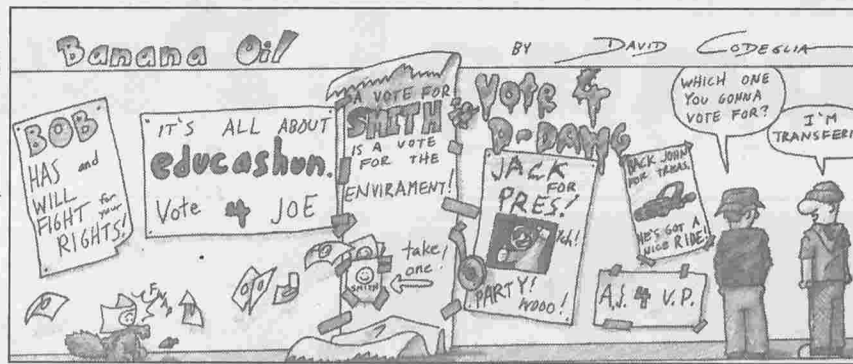 Banana Oil
BY DAVID CODEGLIA
BOB
HAS and
WILL
FIGHT for your
RIGHTS!
IT'S ALL ABOUT
educashun.
Vote 4 JOE
A VOTE FOR
SMITH
IS A VOTE
FOR THE
ENVIRAMENT!
SMITH
take
one!
Vote 4
D-DAWG
JACK
FOR
PRES!
PARTY!
WOOO!
JOHN
FOR TREAS.
HE'S GOT A
NICE RIDE!
A.J. 4 V.P.
WHICH ONE
YOU GONNA
VOTE FOR?
I'M
TRANSFERI